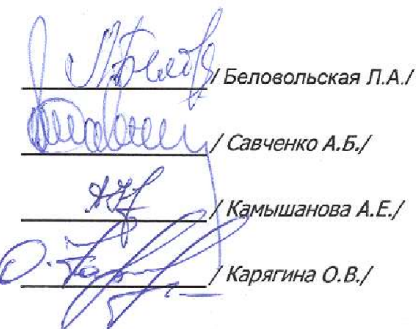 / Беловольская Л.А./
/ Савченко А.Б./
/ Камышанова А.Е./
/ Карягина О.В./